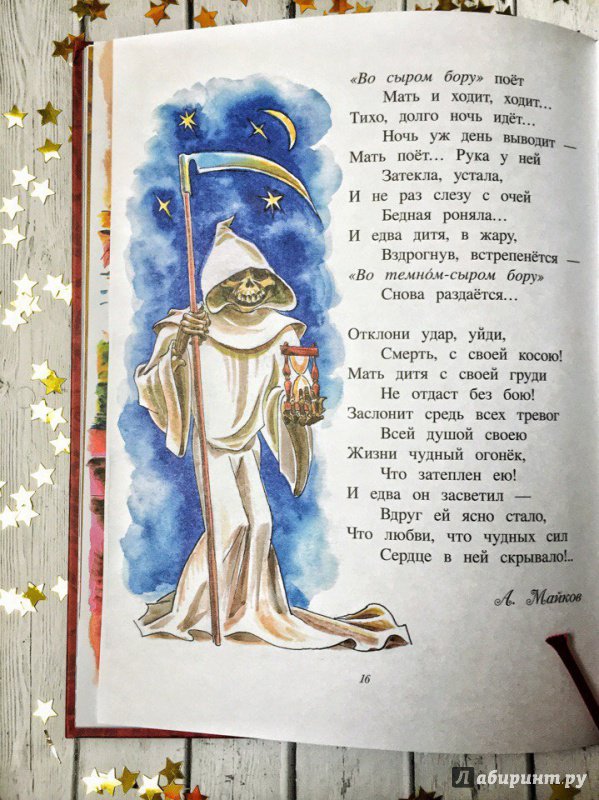 «Во сыром бору» поёт
Мать и ходит, ходит...
Тихо, долго ночь идёт...
Ночь уж день выводит —
Мать поёт... Рука у ней
Затекла, устала,
И не раз слезу с очей
Бедная роняла...
И едва дитя, в жару,
Вздрогнув, встрепенётся —
«Во темно́м-сыром бору»
Снова раздаётся...
Отклони удар, уйди,
Смерть, с своей косою!
Мать дитя с своей груди
Не отдаст без бою!
Заслонит средь всех тревог
Всей душой своею
Жизни чудный огонёк,
Что затеплен ею!
И едва он засветил —
Вдруг ей ясно стало,
Что любви, что чудных сил
Сердце в ней скрывало!..
А. Майков
16
Лабиринт.ру